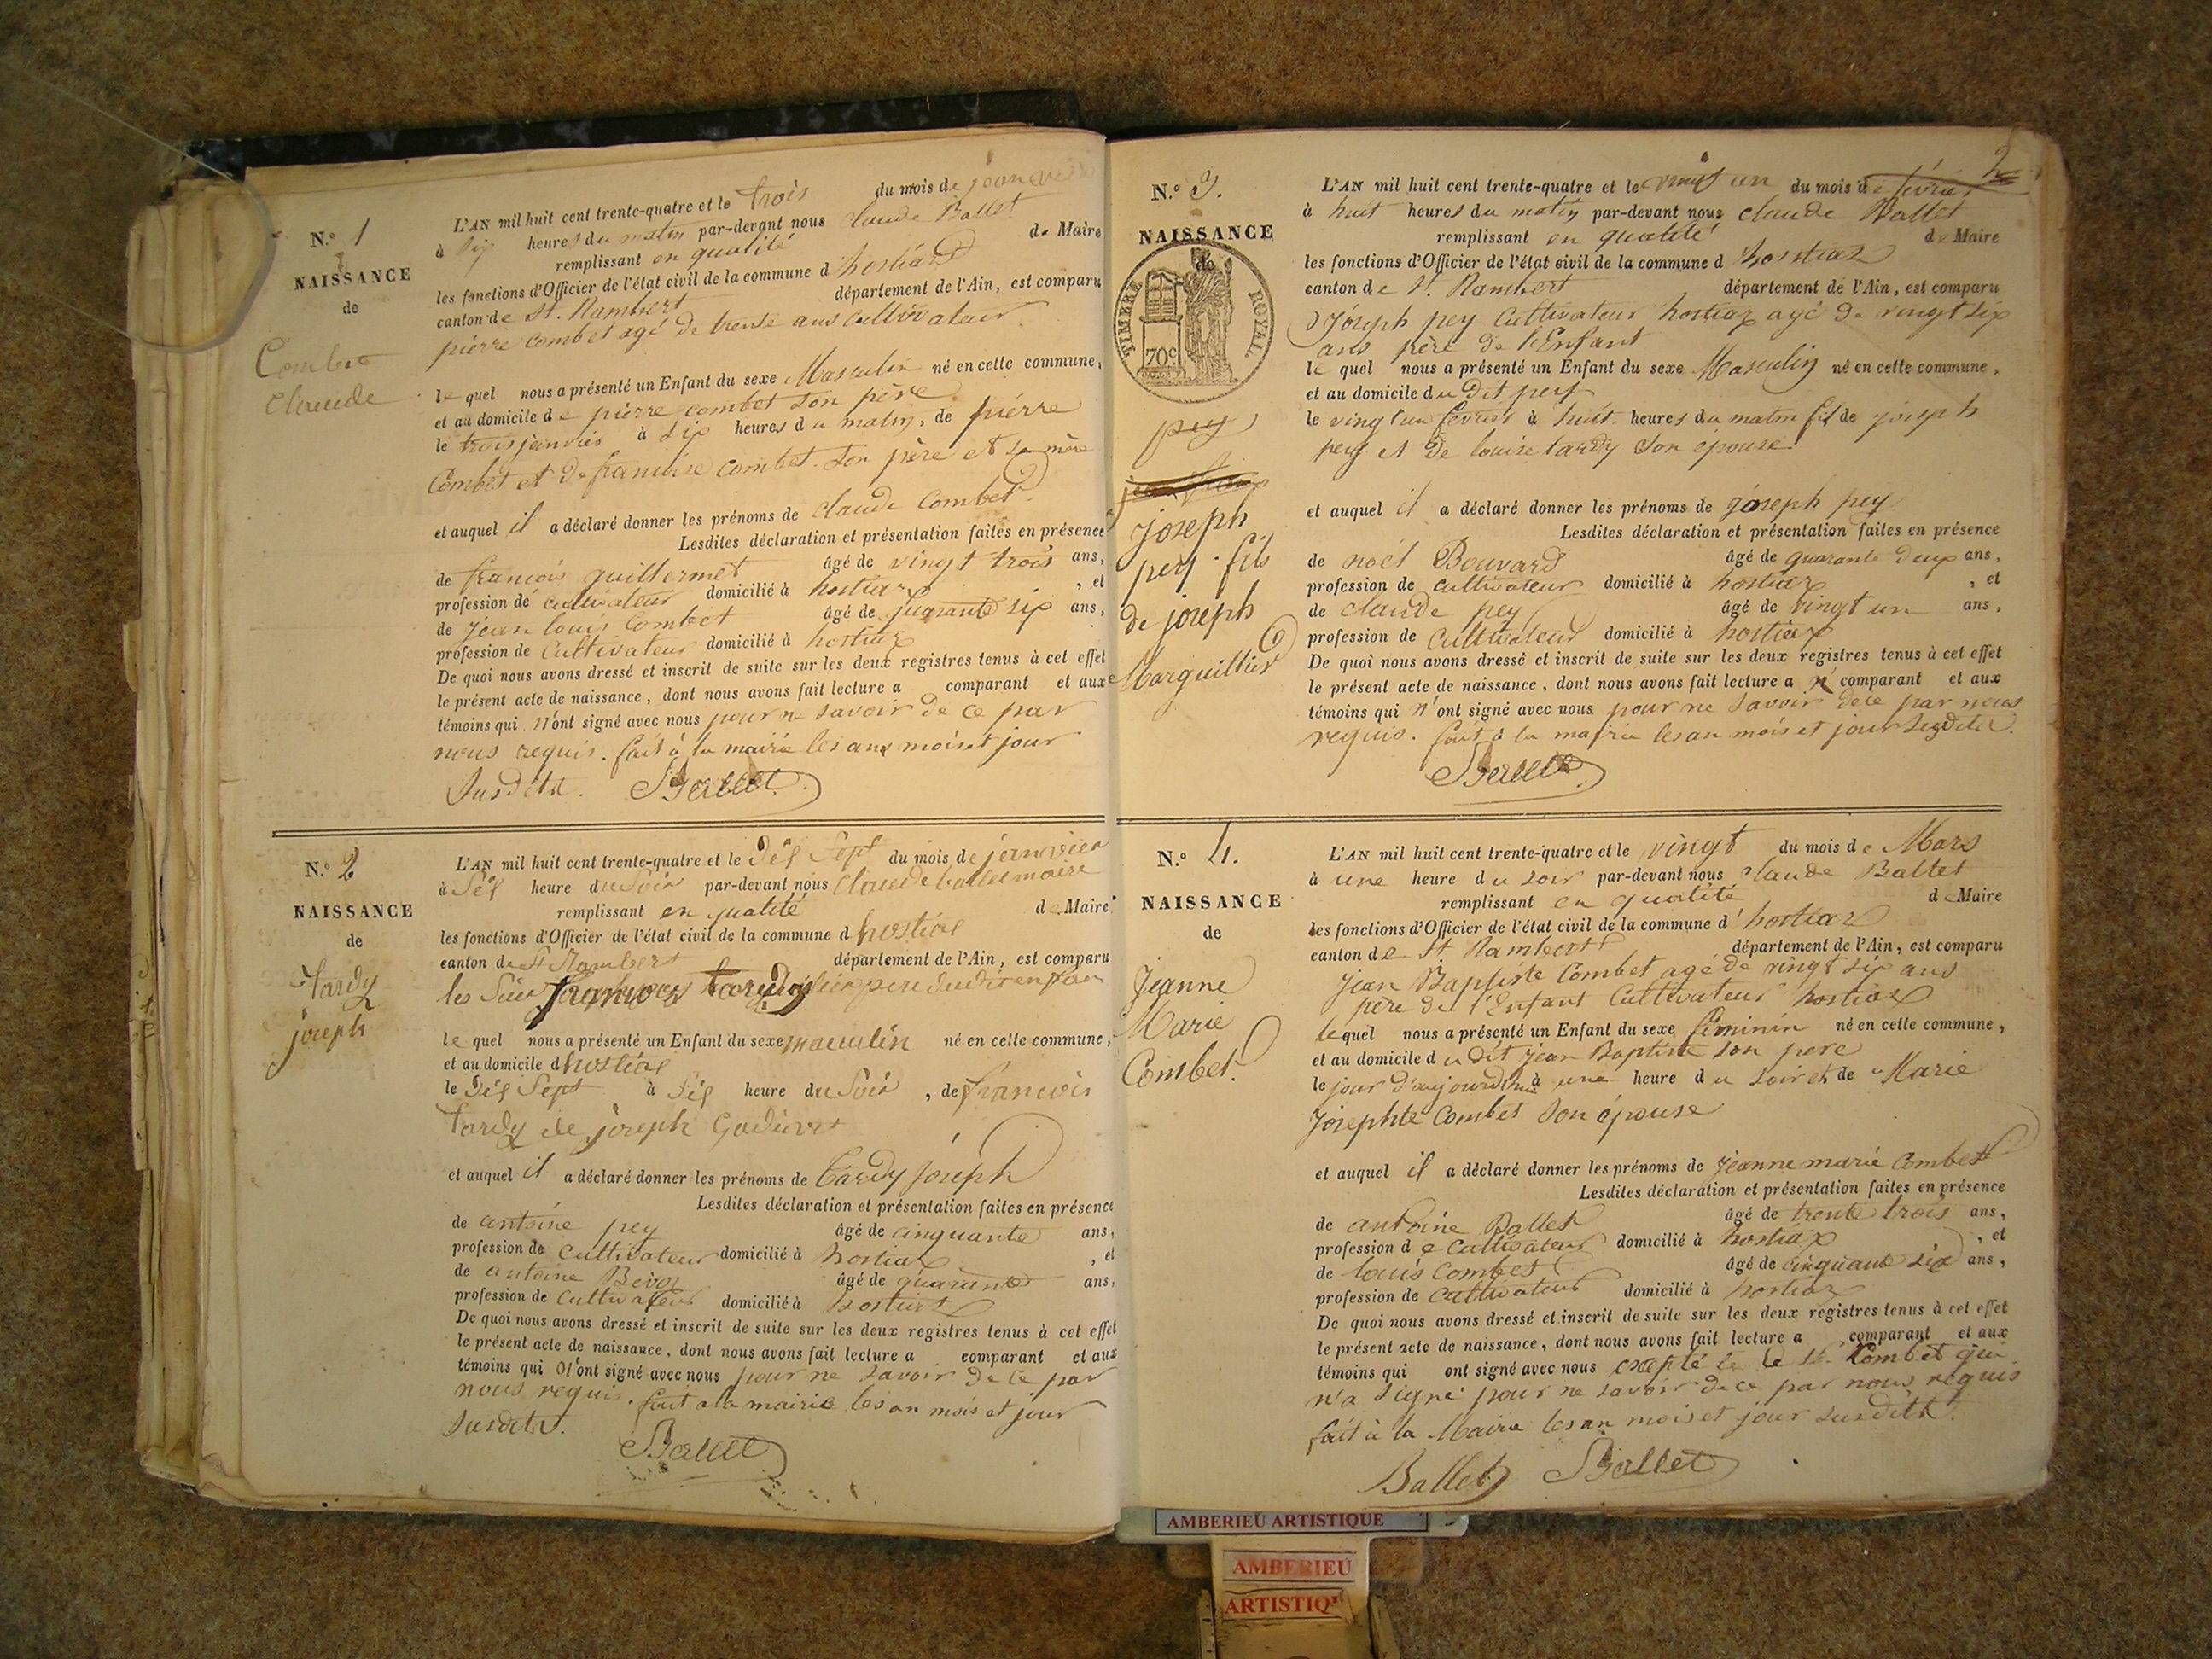 N.° 1
NAISSANCE
de
Combet
Claude
L'AN mil huit cent trente-quatre et le trois du mois de janvier
à dix heures du matin par-devant nous claude Ballet
remplissant en qualité de Maire
les fonctions d'Officier de l'état civil de la commune d'hostiaz
canton de St. Rambert département de l'Ain, est comparu
pierre combet agé de trente ans cultivateur
le quel nous a présenté un Enfant du sexe Masculin né en cette commune,
et au domicile de pierre combet son père
le trois janvier à six heures du matin, de pierre
Combet et de francoise combet son père et sa mère
et auquel il a déclaré donner les prénoms de claude Combet
Lesdites déclaration et présentation faites en présence
de francois guillermet âgé de vingt trois ans,
profession de cultivateur domicilié à hostiaz, et
de jean louis Combet âgé de quarante six ans,
profession de Cultivateur domicilié à hostiaz
De quoi nous avons dressé et inscrit de suite sur les deux registres tenus à cet effet
le présent acte de naissance, dont nous avons fait lecture a comparant et aux
témoins qui n'ont signé avec nous pour ne savoir de ce par
nous requis. fait à la mairie les ans mois et jour
susdits. Ballet
N.° 2
NAISSANCE
de
Tardy
joseph
L'AN mil huit cent trente-quatre et le dis Sept du mois de janvier
à dis heure du Soir par-devant nous claude ballet maire
remplissant en qualité de Maire
les fonctions d'Officier de l'état civil de la commune d hostias
canton de St Rambert département de l'Ain, est comparu
francois tardy pere dudit enfan
le quel nous a présenté un Enfant du sexe masculin né en cette commune,
et au domicile d hostias
le dis Sept à dis heure du Soir, de francois
tardy de joseph Godivet
et auquel il a déclaré donner les prénoms de tardy joseph
Lesdites déclaration et présentation faites en présence
de antoine pey âgé de cinquante ans,
profession de cultivateur domicilié à hostiaz, et
de antoine âgé de quarante ans,
profession de cultivateur domicilié à
De quoi nous avons dressé et inscrit de suite sur les deux registres tenus à cet effet
le présent acte de naissance, dont nous avons fait lecture a comparant et aux
témoins qui n'ont signé avec nous pour ne savoir de ce par
nous requis. fait a la mairie les an mois et jour
susdits.
Ballet
2
N.° 3.
NAISSANCE
de
TIMBRE ROYAL
70c
pey
joseph
pey fils
de joseph
Marguillier
L'AN mil huit cent trente-quatre et le vingt un du mois de février
à huit heures du matin par-devant nous claude Ballet
remplissant en qualité de Maire
les fonctions d'Officier de l'état civil de la commune d'hostiaz
canton de St. Rambert département de l'Ain, est comparu
joseph pey cultivateur hostiaz agé de vingt six
ans père de l'Enfant
le quel nous a présenté un Enfant du sexe Masculin né en cette commune,
et au domicile du dit pey
le vingt un fevrier à huit heures du matin fils de joseph
pey et de louise tardy son epouse
et auquel il a déclaré donner les prénoms de joseph pey
Lesdites déclaration et présentation faites en présence
de noël Bouvard âgé de quarante deux ans,
profession de cultivateur domicilié à hostiaz, et
de claude pey âgé de vingt un ans,
profession de cultivateur domicilié à hostiaz
De quoi nous avons dressé et inscrit de suite sur les deux registres tenus à cet effet
le présent acte de naissance, dont nous avons fait lecture a comparant et aux
témoins qui n'ont signé avec nous pour ne savoir de ce par nous
requis. fait à la mairie les an mois et jour susdits.
Ballet
N.° 4.
NAISSANCE
de
Jeanne
Marie
Combet.
L'AN mil huit cent trente-quatre et le vingt du mois de Mars
à une heure du soir par-devant nous claude Ballet
remplissant en qualité de Maire
les fonctions d'Officier de l'état civil de la commune d'hostiaz
canton de St. Rambert département de l'Ain, est comparu
Jean Baptiste Combet agé de vingt six ans
père de l'Enfant Cultivateur hostiaz
lequel nous a présenté un Enfant du sexe féminin né en cette commune,
et au domicile du dit jean Baptiste son pere
le jour d'aujourdhui à une heure du soir et de Marie
Josephte Combet son épouse
et auquel il a déclaré donner les prénoms de jeanne marie Combet
Lesdites déclaration et présentation faites en présence
de antoine Ballet âgé de trente trois ans,
profession de cultivateur domicilié à hostiaz, et
de louis Combet âgé de cinquante six ans,
profession de cultivateur domicilié à hostiaz
De quoi nous avons dressé et inscrit de suite sur les deux registres tenus à cet effet
le présent acte de naissance, dont nous avons fait lecture a comparant et aux
témoins qui ont signé avec nous excepté le Combet qui
n'a signé pour ne savoir de ce par nous requis
fait à la Mairie les an mois et jour susdits.
Ballet Ballet
AMBERIEU ARTISTIQUE
AMBERIEU
ARTISTIQ